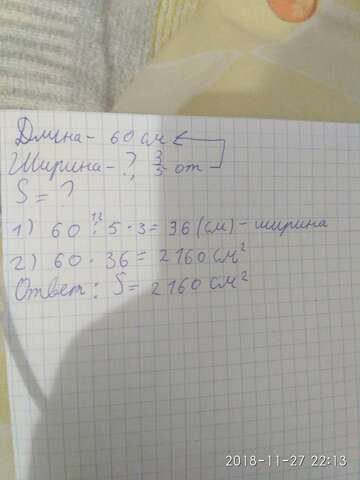 Длина - 60 см
Ширина - ?, 3/5 от
S = ?
1) 60 : 5 · 3 = 36 (см) - ширина
12
2) 60 · 36 = 2160 см²
Ответ: S = 2160 см²
2018-11-27 22:13